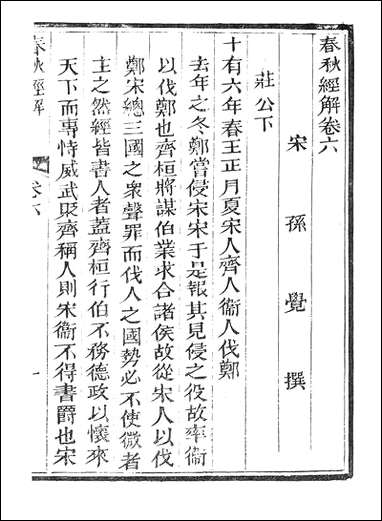 春秋經解卷六
宋孫覺撰
莊公下
十有六年春王正月夏宋人齊人衞人伐鄭
去年之冬鄭嘗侵宋宋于是報其見侵之役故率衞
以伐鄭也齊桓將謀伯業求合諸侯故從宋人以伐
鄭宋總三國之衆聲罪而伐人之國勢必不使微者
主之然經皆書人者蓋齊桓行伯不務德政以懷來
天下而專恃威武聚齊稱人則宋衞不得書爵也宋
春秋經解
卷六
一